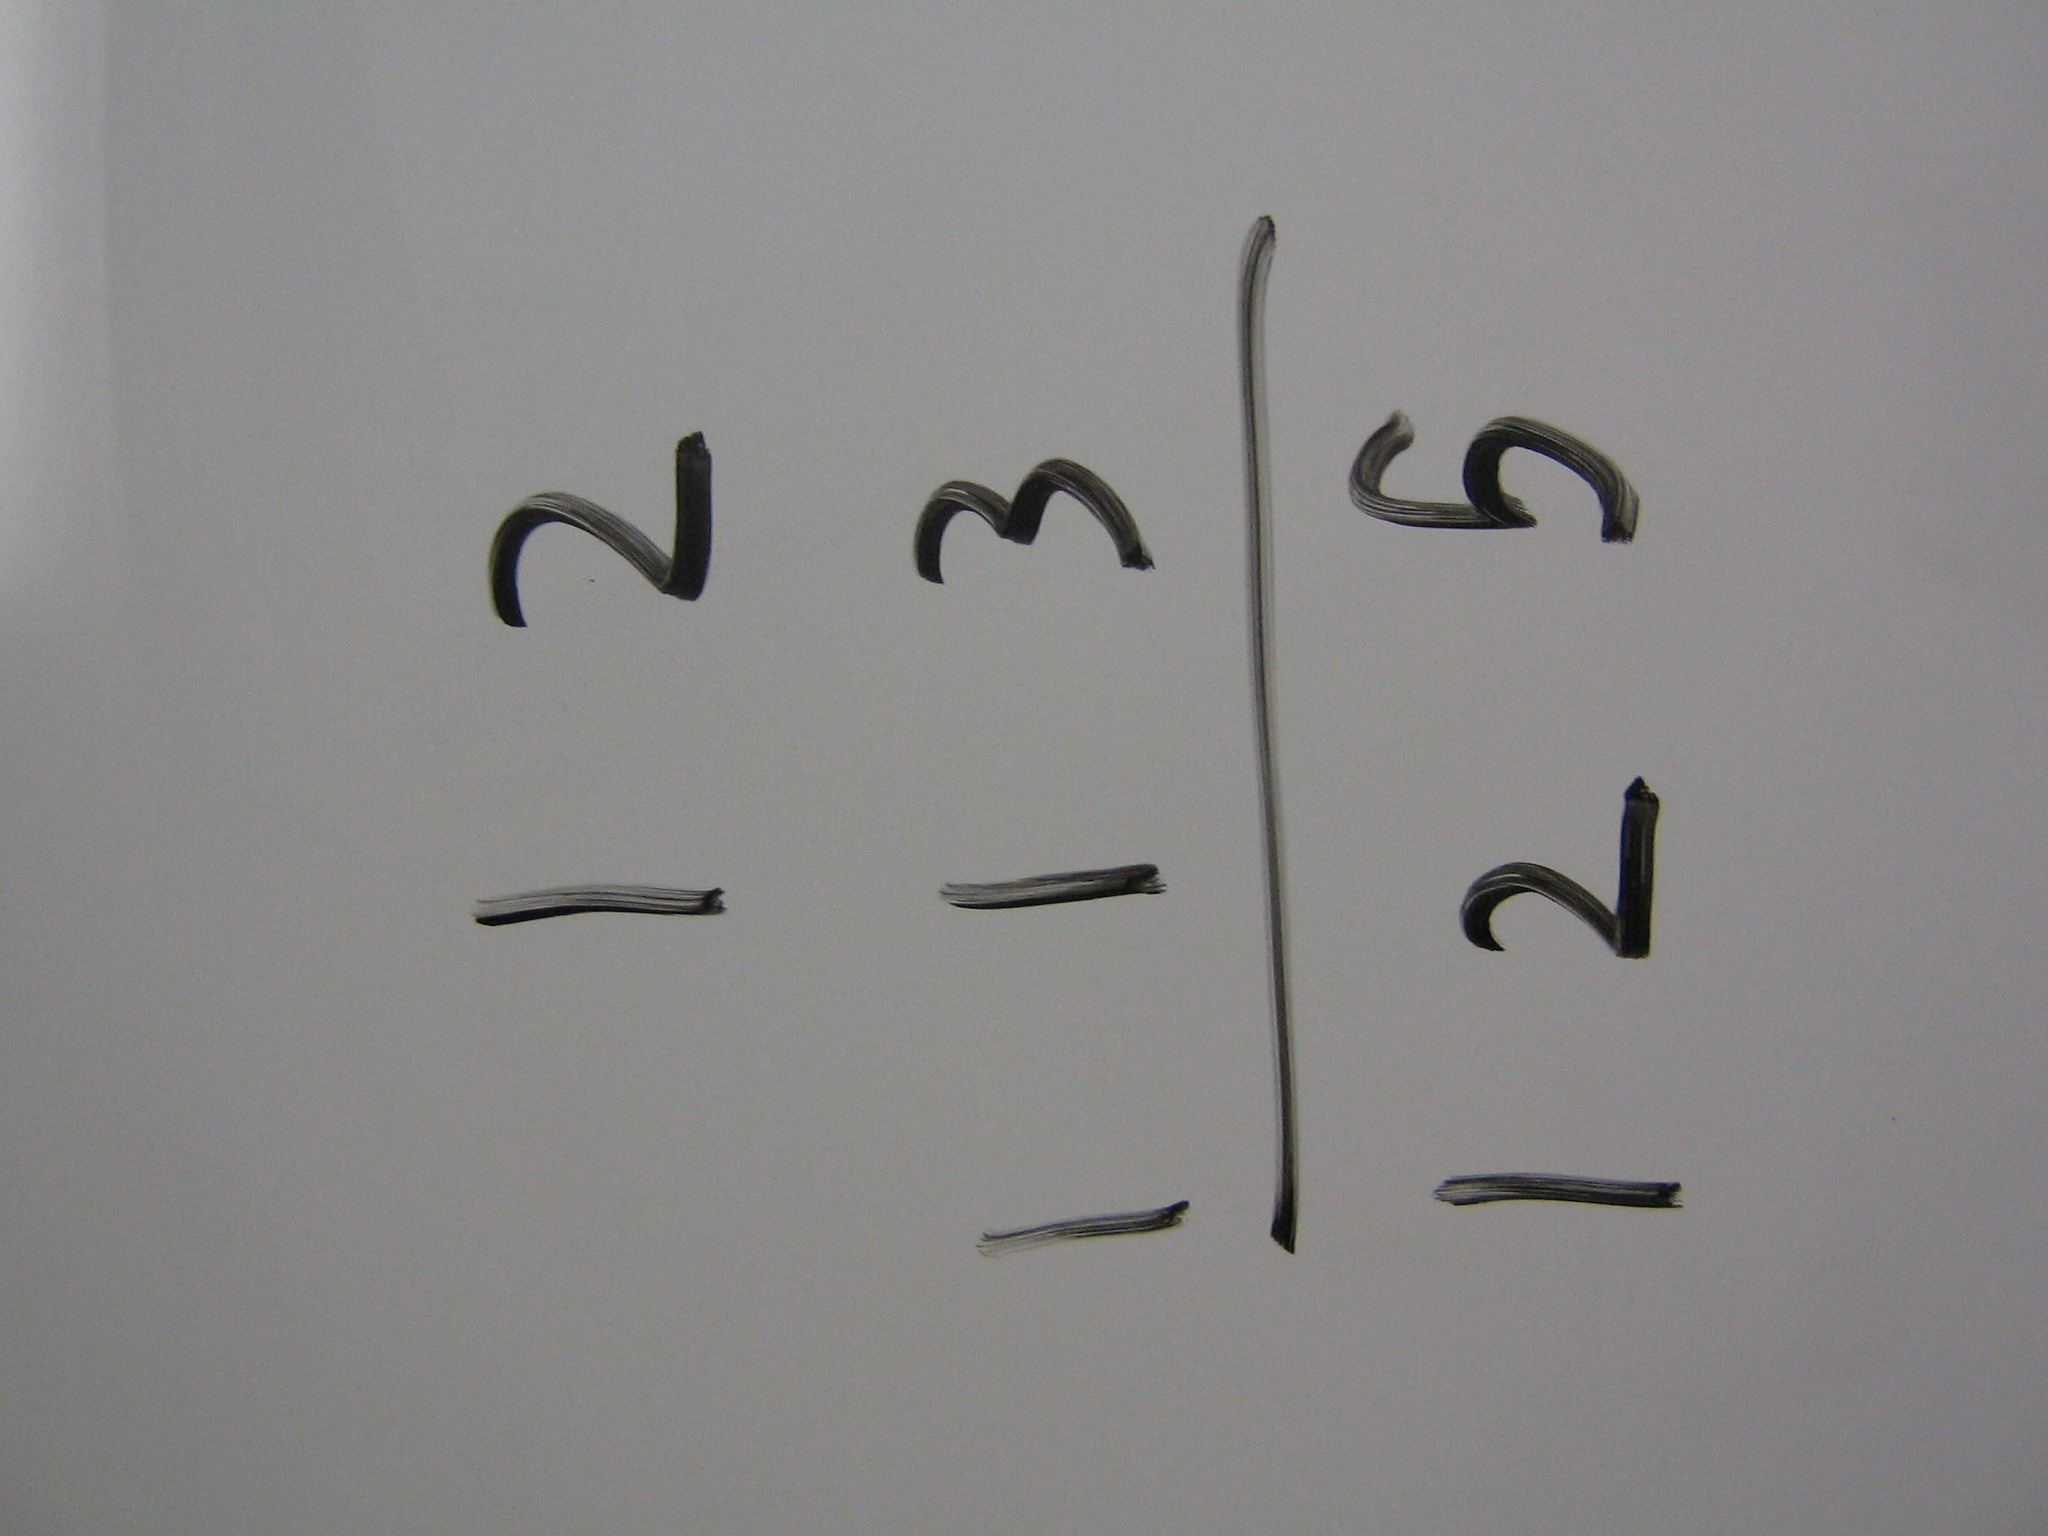 12
113
125